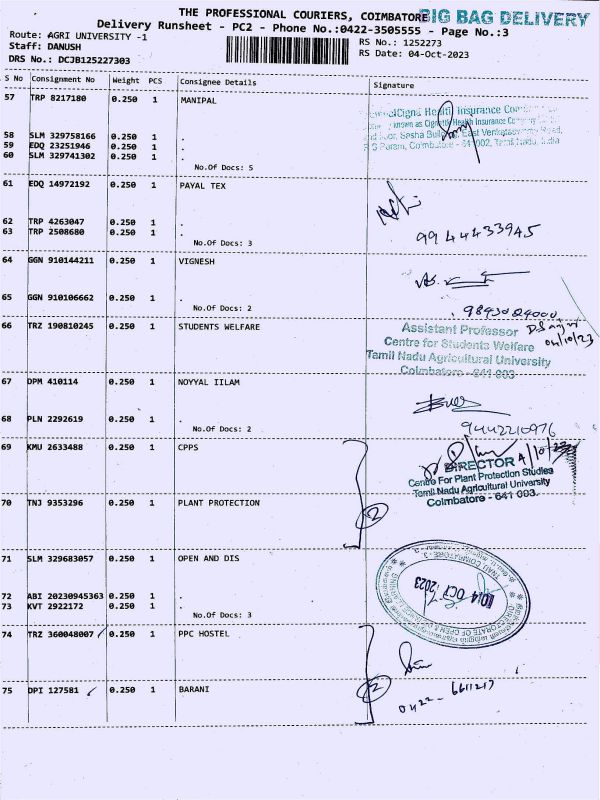 THE PROFESSIONAL COURIERS, COIMBATORE BIG BAG DELIVERY
Delivery Runsheet - PC2 - Phone No.:0422-3505555 - Page No.:3
Route: AGRI UNIVERSITY -1
RS No.: 1252273
Staff: DANUSH
RS Date: 04-Oct-2023
DRS No.: DCJB125227303
S No Consignment No Weight PCS Consignee Details Signature
57 TRP 8217180 0.250 1 MANIPAL
58 SLM 329758166 0.250 1 .
59 EDQ 23251946 0.250 1 .
60 SLM 329741302 0.250 1 .
No.Of Docs: 5
61 EDQ 14972192 0.250 1 PAYAL TEX
62 TRP 4263047 0.250 1 .
63 TRP 2508680 0.250 1 .
No.Of Docs: 3
9944433945
64 GGN 910144211 0.250 1 VIGNESH
65 GGN 910106662 0.250 1 .
No.Of Docs: 2
9843024000
66 TRZ 190810245 0.250 1 STUDENTS WELFARE
Assistant Professor
04/10/23
Centre for Students Welfare
Tamil Nadu Agricultural University
Coimbatore - 641 003
67 DPM 410114 0.250 1 NOYYAL IILAM
68 PLN 2292619 0.250 1 .
No.Of Docs: 2
9442210976
69 KMU 2633488 0.250 1 CPPS
DIRECTOR
Centre For Plant Protection Studies
Tamil Nadu Agricultural University
Coimbatore - 641 003.
70 TNJ 9353296 0.250 1 PLANT PROTECTION
2
71 SLM 329683057 0.250 1 OPEN AND DIS
72 ABI 20230945363 0.250 1 .
73 KVT 2922172 0.250 1 .
No.Of Docs: 3
04 OCT 2023
74 TRZ 360048007 0.250 1 PPC HOSTEL
75 DPI 127581 0.250 1 BARANI
2
0422-6611217